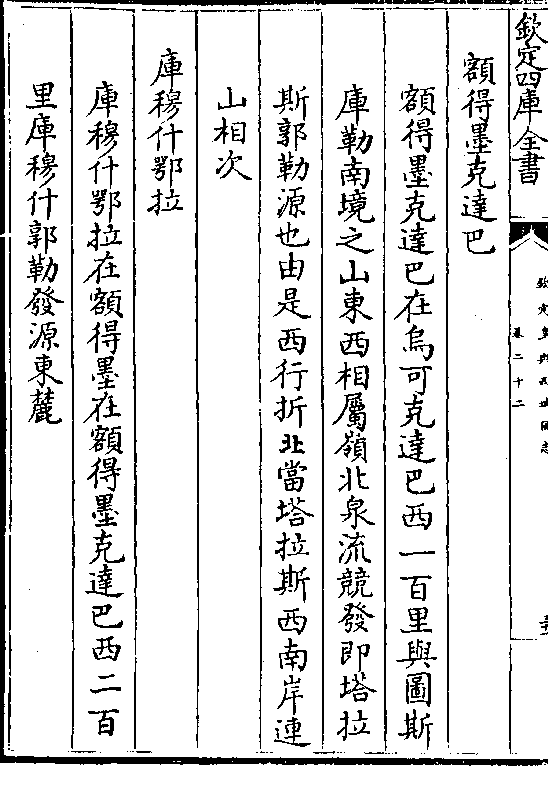 欽定四庫全書
欽定皇輿西域圖志
卷二十二
額得墨克達巴
額得墨克達巴在烏可克達巴西一百里與圖斯
庫勒南境之山東西相屬嶺北泉流競發即塔拉
斯郭勒源也由是西行折北當塔拉斯西南岸連
山相次
庫穆什鄂拉
庫穆什鄂拉在額得墨在額得墨克達巴西二百
里庫穆什郭勒發源東麓